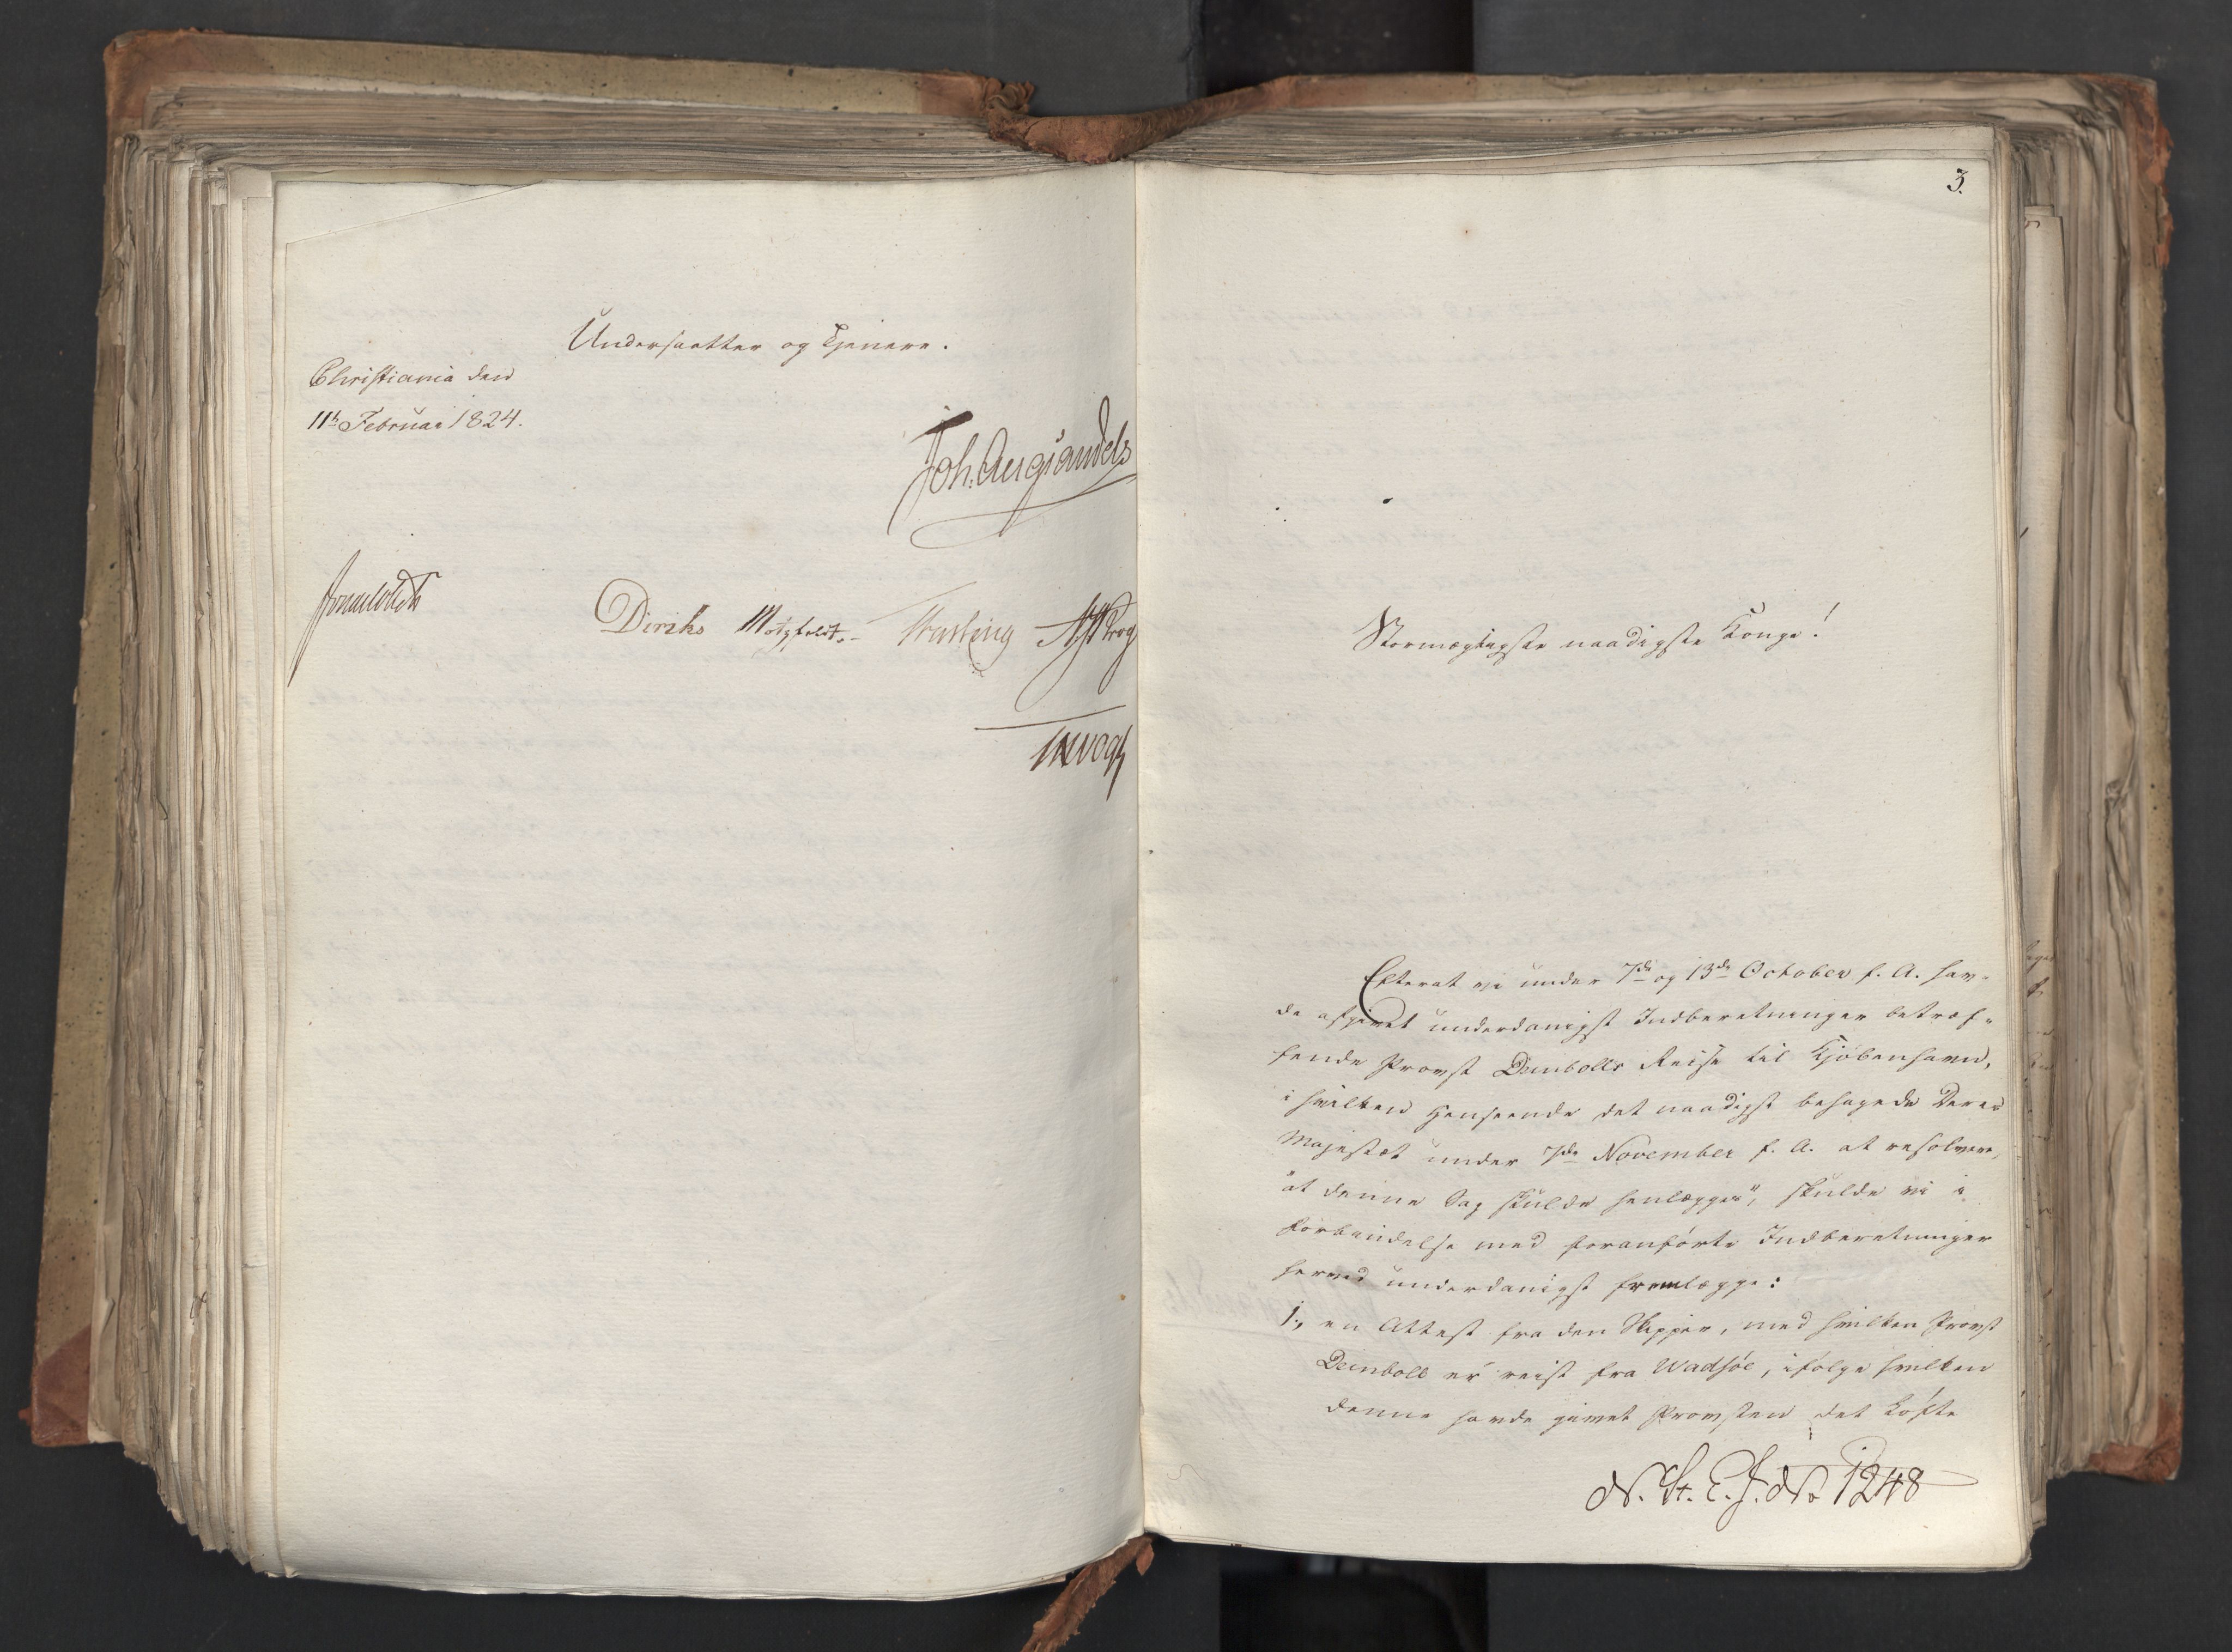 Undersaatter og Tjenere.
Christiania den
11te Februar 1824.
Joh. Aug. Sandels
Sommerhielm
Diriks Motzfeldt. Treschow N J Krog
JHVogt
3.
Stormægtigste naadigste Konge!
Efterat vi under 7de og 13de October f. A. hav-
de afgivet underdanigst Indberetninger betræf-
fende Provst Deinbolls Reise til Kjöbenhavn,
i hvilken Henseende det naadigst behagede Deres
Majestæt under 7de November f. A. at resolvere,
"at denne Sag skulde henlægges", skulde vi i
Forbindelse med foranförte Indberetninger
herved underdanigst fremlægge:
1., en Attest fra den Skipper, med hvilken Provst
Deinboll er reist fra Wadsöe, ifölge hvilken
denne havde givet Provsten det Löfte
N. St. E. J. No 1248